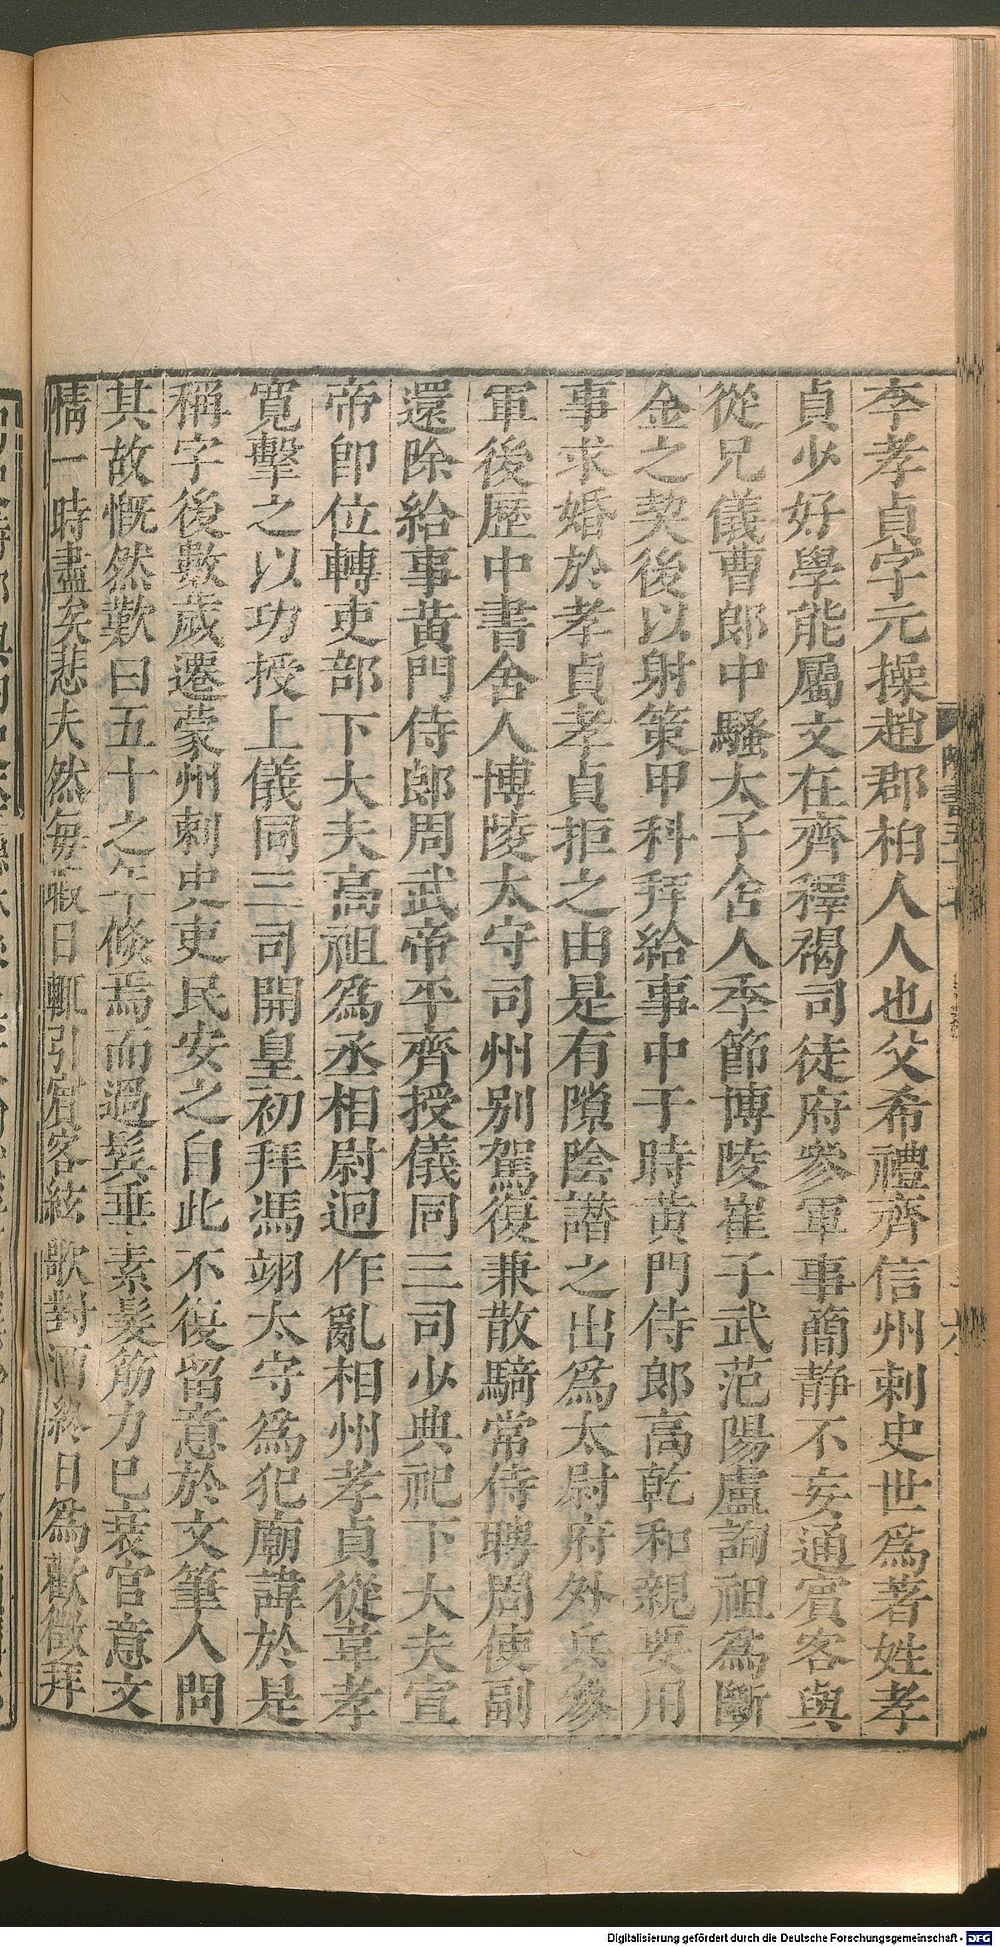 李孝貞字元操趙郡柏人人也父希禮齊信州刺史世爲著姓孝
貞少好學能屬文在齊釋褐司徒府參軍事簡静不妄通賓客與
從兄儀曹郎中騷太子舍人季節博陵崔子武范陽盧詢祖爲斷
金之契後以射策甲科拜給事中于時黄門侍郎高乾和親要用
事求婚於孝貞孝貞拒之由是有隙陰譖之出爲太尉府外兵參
軍後歷中書舍人博陵太守司州别駕復兼散騎常侍聘周使副
還除給事黄門侍郎周武帝平齊授儀同三司少典祀下大夫宣
帝卽位轉吏部下大夫高祖爲丞相尉迥作亂相州孝貞從韋孝
寛擊之以功授上儀同三司開皇初拜馮翊太守爲犯廟諱於是
稱字後數歲遷蒙州刺史吏民安之自此不復留意於文筆人問
其故慨然歎曰五十之年倐焉而過鬓垂素髮筋力已衰宦意文
情一時盡矣悲夫然每暇日輒引賓客絃歌對酒終日爲歡徵拜
隋書五十七
Digitalisierung gefördert durch die Deutsche Forschungsgemeinschaft - DFG